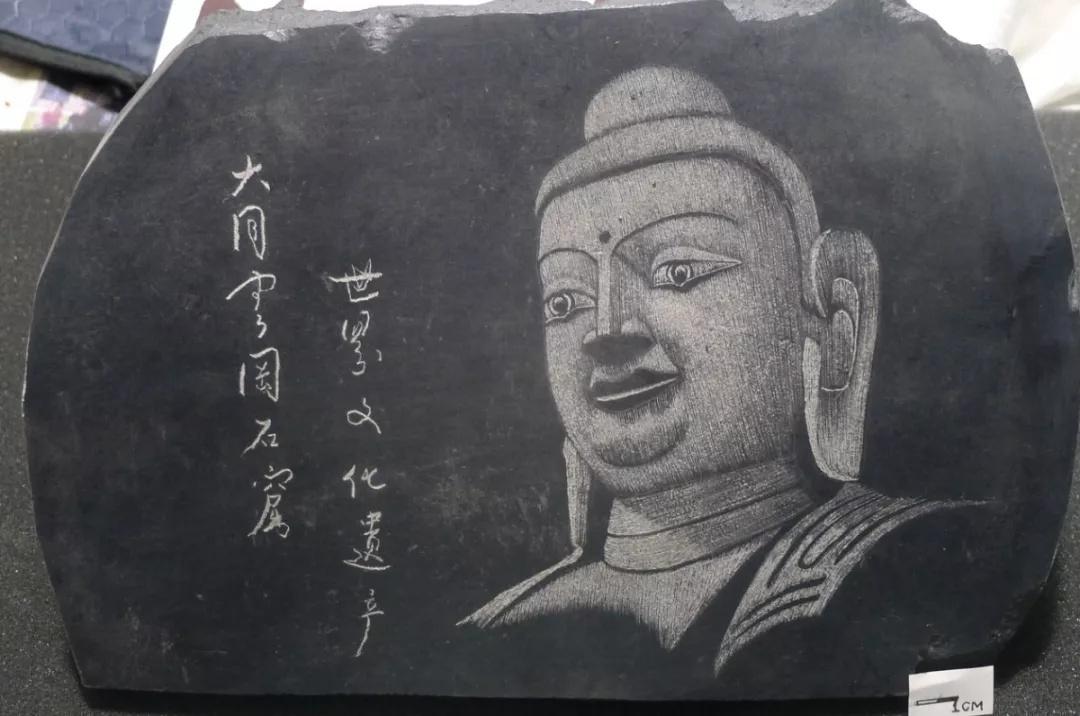 世界文化遗产
大同雲岡石窟
1CM